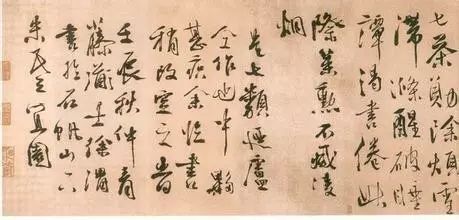 七茶勛除煩雪
滯滌醒破睡
譚渴書倦此
際策勳不減凌
烟
是七類乃盧
仝作也中夥
甚疾余臨書
稍改定之旹
壬辰秋仲青
藤道士徐渭
書於石帆山下
朱氏三宜園